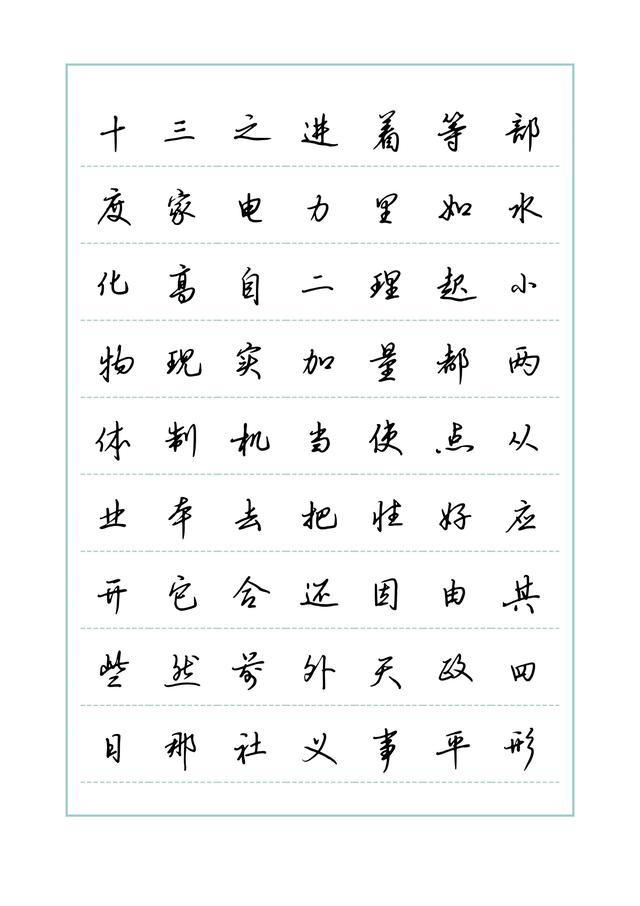 十 三 之 进 着 等 部
度 家 电 力 里 如 水
化 高 自 二 理 起 小
物 现 实 加 量 都 两
体 制 机 当 使 点 从
业 本 去 把 性 好 应
开 它 合 还 因 由 其
些 然 前 外 天 政 四
日 那 社 义 事 平 形